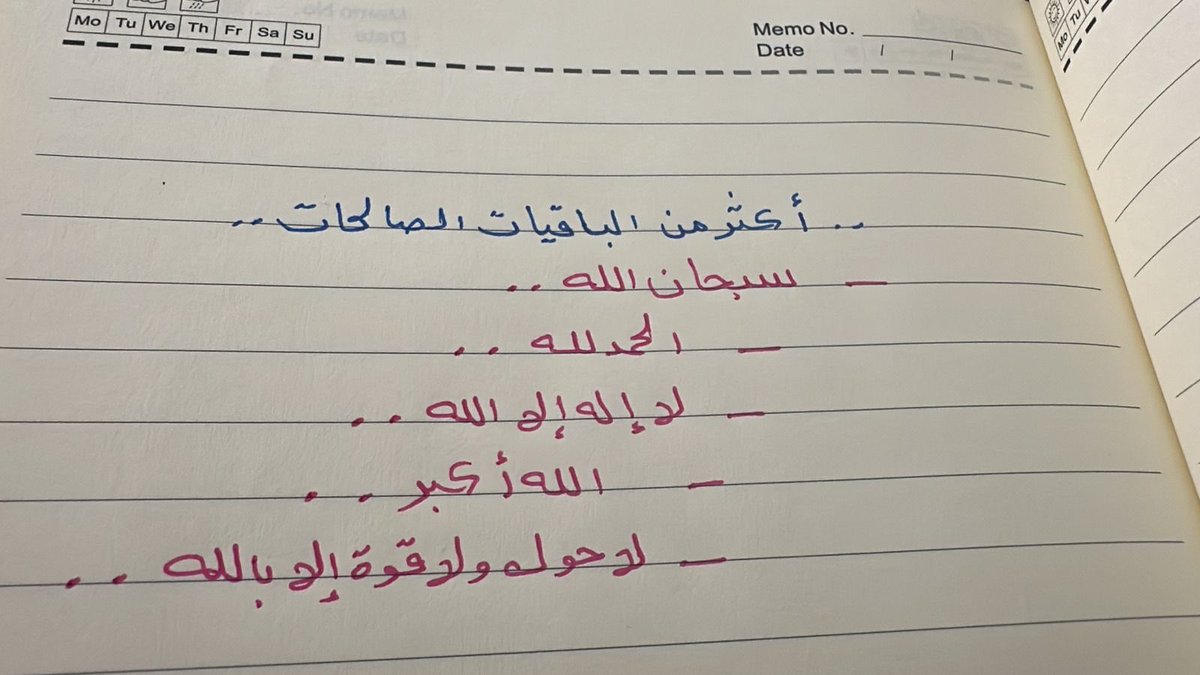 Mo Tu We Th Fr Sa Su
Memo No.
Date / /
Mo Tu
.. أكثر من الباقيات الصالحات ..
— سبحان الله ..
— الحمد لله ..
— لا إله إلا الله ..
— الله أكبر ..
— لا حول ولا قوة إلا بالله ..